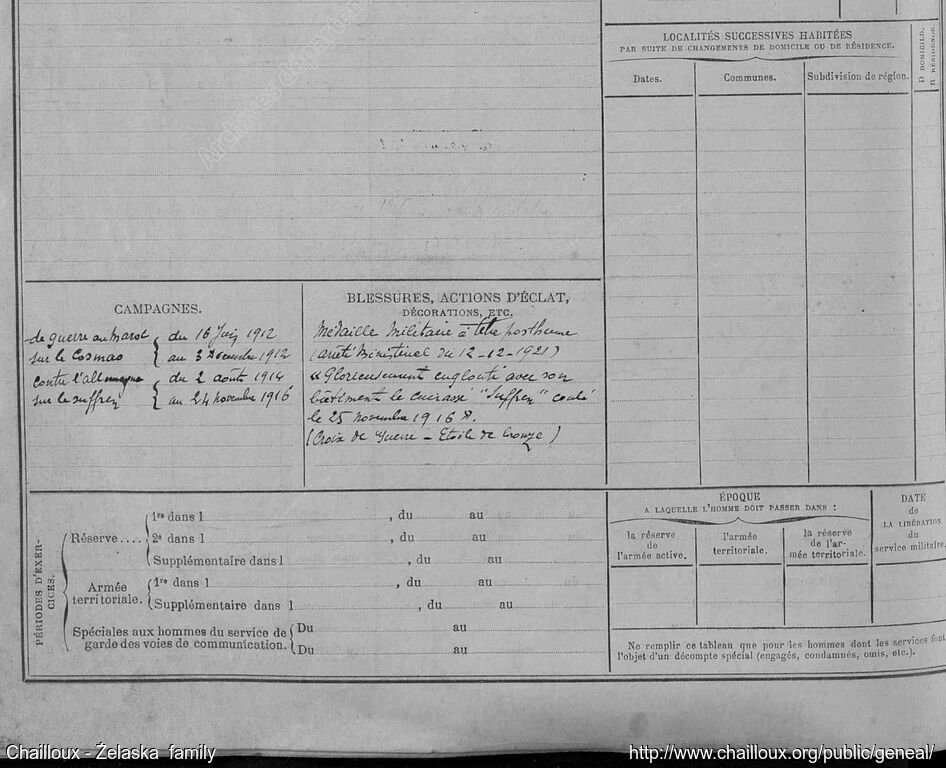 Archives départementales
LOCALITÉS SUCCESSIVES HABITÉES
PAR SUITE DE CHANGEMENTS DE DOMICILE OU DE RÉSIDENCE.
Dates.
Communes.
Subdivision de région.
D DOMICILE.
R RÉSIDENCE
CAMPAGNES.
de guerre au Maroc { du 16 Juin 1912
sur le Cosmao { au 3 Décembre 1912
contre l'allemagne { du 2 août 1914
sur le suffren { au 24 novembre 1916
BLESSURES, ACTIONS D'ÉCLAT,
DÉCORATIONS, ETC.
Médaille Militaire à titre posthume
(arrêté Ministériel du 12-12-1921)
« Glorieusement englouti avec son
bâtiment le cuirassé "Suffren" coulé
le 25 novembre 1916 ».
(Croix de Guerre - Etoile de bronze)
PÉRIODES D'EXER-
CICES.
Réserve....
1re dans l , du au
2e dans l , du au
Supplémentaire dans l , du au
Armée
territoriale.
1re dans l , du au
Supplémentaire dans l , du au
Spéciales aux hommes du service de
garde des voies de communication.
Du au
Du au
ÉPOQUE
A LAQUELLE L'HOMME DOIT PASSER DANS :
la réserve
de
l'armée active.
l'armée
territoriale.
la réserve
de l'ar-
mée territoriale.
DATE
de
LA LIBÉRATION
du
service militaire.
Ne remplir ce tableau que pour les hommes dont les services font
l'objet d'un décompte spécial (engagés, condamnés, omis, etc.).
Chailloux - Żelaska family
http://www.chailloux.org/public/geneal/